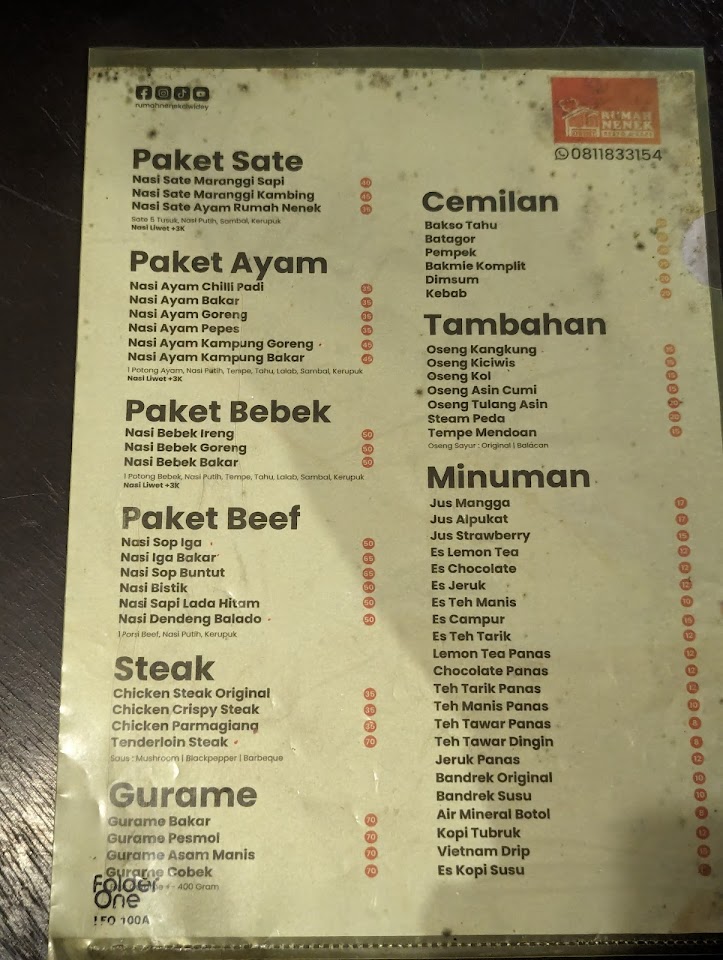 rumahnenekciwidey
Paket Sate
Nasi Sate Maranggi Sapi 40
Nasi Sate Maranggi Kambing 45
Nasi Sate Ayam Rumah Nenek
Sate 5 Tusuk, Nasi Putih, Sambal, Kerupuk
Nasi Liwet +3K
Paket Ayam
Nasi Ayam Chilli Padi 35
Nasi Ayam Bakar 35
Nasi Ayam Goreng 35
Nasi Ayam Pepes 35
Nasi Ayam Kampung Goreng 45
Nasi Ayam Kampung Bakar 45
1 Potong Ayam, Nasi Putih, Tempe, Tahu, Lalab, Sambal, Kerupuk
Nasi Liwet +3K
Paket Bebek
Nasi Bebek Ireng 50
Nasi Bebek Goreng 50
Nasi Bebek Bakar 50
1 Potong Bebek, Nasi Putih, Tempe, Tahu, Lalab, Sambal, Kerupuk
Nasi Liwet +3K
Paket Beef
Nasi Sop Iga 50
Nasi Iga Bakar 65
Nasi Sop Buntut 65
Nasi Bistik 50
Nasi Sapi Lada Hitam 50
Nasi Dendeng Balado 50
1 Porsi Beef, Nasi Putih, Kerupuk
Steak
Chicken Steak Original 35
Chicken Crispy Steak 35
Chicken Parmagiana 35
Tenderloin Steak 70
Saus : Mushroom | Blackpepper | Barbeque
Gurame
Gurame Bakar 70
Gurame Pesmol 70
Gurame Asam Manis 70
Gurame Cobek 70
- 400 Gram
Folder
One
LFO 100A
RUMAH
NENEK
0811833154
Cemilan
Bakso Tahu
Batagor
Pempek
Bakmie Komplit
Dimsum
Kebab
Tambahan
Oseng Kangkung
Oseng Kiciwis
Oseng Kol
Oseng Asin Cumi
Oseng Tulang Asin
Steam Peda
Tempe Mendoan
Oseng Sayur : Original | Balacan
Minuman
Jus Mangga
Jus Alpukat
Jus Strawberry
Es Lemon Tea 12
Es Chocolate 12
Es Jeruk 12
Es Teh Manis 10
Es Campur
Es Teh Tarik 12
Lemon Tea Panas 12
Chocolate Panas 12
Teh Tarik Panas 12
Teh Manis Panas 10
Teh Tawar Panas 8
Teh Tawar Dingin 8
Jeruk Panas 12
Bandrek Original 10
Bandrek Susu 10
Air Mineral Botol
Kopi Tubruk
Vietnam Drip
Es Kopi Susu